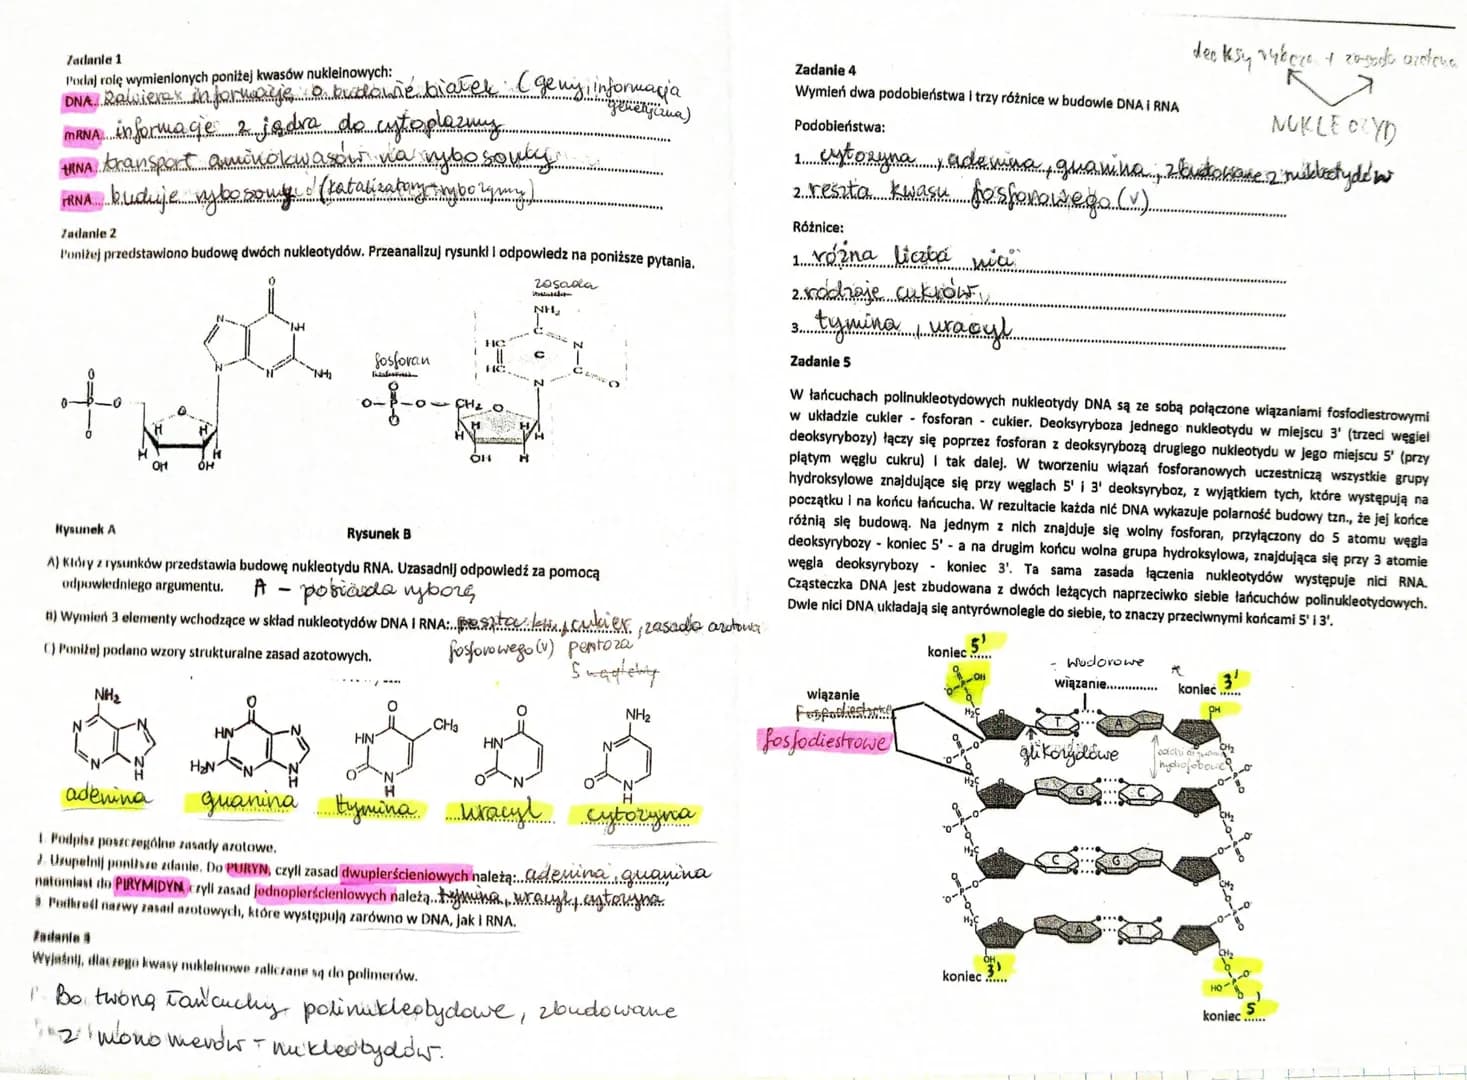 Zadanie 1
Podaj rolę wymienionych poniżej kwasów nukleinowych:
DNA.. zawiera informację o budowie białek (geny, informacja
genetyczna)
mRNA informacje z jądra do cytoplazmy
tRNA transport aminokwasów na rybosomy
rRNA... buduje rybosomy (katalizatory-rybozymy)
Zadanie 2
Poniżej przedstawiono budowę dwóch nukleotydów. Przeanalizuj rysunki i odpowiedz na poniższe pytania.
zasada
fosforan
O
N
NH
N
N
NH₂
O
O-P-O
O
O
H H
H H
OH OH
NH₂
C
HC
N
C
HC
C
O
N
O
O-P-O-CH₂ O
O
H H
H H
OH H
Rysunek A
Rysunek B
A) Który z rysunków przedstawia budowę nukleotydu RNA. Uzasadnij odpowiedź za pomocą
odpowiedniego argumentu. A - posiada rybozę
B) Wymień 3 elementy wchodzące w skład nukleotydów DNA i RNA: reszta kw., cukier, zasada azotowa
fosforowego (V) pentoza
5 węglowy
C) Poniżej podano wzory strukturalne zasad azotowych.
NH₂
N
N
N
N
H
O
HN
N
H₂N
N
N
H
O
HN
CH₃
O
N
H
O
HN
O
N
NH₂
N
O
N
H
adenina guanina tymina uracyl cytozyna
1 Podpisz poszczególne zasady azotowe.
2. Uzupełnij poniższe zdanie. Do PURYN, czyli zasad dwupierścieniowych należą:.. adenina, guanina
natomiast do PIRYMIDYN czyli zasad jednopierścieniowych należą.. tymina, uracyl, cytozyna
3 Podkreśl nazwy zasad azotowych, które występują zarówno w DNA, jak i RNA.
Zadanie 3
Wyjaśnij, dlaczego kwasy nukleinowe zaliczane są do polimerów.
Bo tworzą łańcuchy polinukleotydowe, zbudowane
z monomerów - nukleotydów.
deoksyryboza + zasada azotowa
NUKLEOZYD
Zadanie 4
Wymień dwa podobieństwa i trzy różnice w budowie DNA i RNA
Podobieństwa:
1.... cytozyna, adenina, guanina; zbudowane z nukleotydów
2.. reszta kwasu fosforowego (V)
Różnice:
1.... różna liczba nici
2. rodzaje cukrów
3.... tymina, uracyl
Zadanie 5
W łańcuchach polinukleotydowych nukleotydy DNA są ze sobą połączone wiązaniami fosfodiestrowymi
w układzie cukier - fosforan - cukier. Deoksyryboza jednego nukleotydu w miejscu 3' (trzeci węgiel
deoksyrybozy) łączy się poprzez fosforan z deoksyrybozą drugiego nukleotydu w jego miejscu 5' (przy
piątym węglu cukru) i tak dalej. W tworzeniu wiązań fosforanowych uczestniczą wszystkie grupy
hydroksylowe znajdujące się przy węglach 5' i 3' deoksyryboz, z wyjątkiem tych, które występują na
początku i na końcu łańcucha. W rezultacie każda nić DNA wykazuje polarność budowy tzn., że jej końce
różnią się budową. Na jednym z nich znajduje się wolny fosforan, przyłączony do 5 atomu węgla
deoksyrybozy - koniec 5' - a na drugim końcu wolna grupa hydroksylowa, znajdująca się przy 3 atomie
węgla deoksyrybozy - koniec 3'. Ta sama zasada łączenia nukleotydów występuje nici RNA.
Cząsteczka DNA jest zbudowana z dwóch leżących naprzeciwko siebie łańcuchów polinukleotydowych.
Dwie nici DNA układają się antyrównolegle do siebie, to znaczy przeciwnymi końcami 5' i 3'.
koniec 5'
- wodorowe
wiązanie..............
koniec 3'
wiązanie
fosfodiestrowe
glikozydowe
hydrofobowe
OH
H₂C
T A
OH
CH₂
H₂C
G C
CH₂
H₂C
C G
CH₂
H₂C
A T
CH₂
OH
HO
koniec 3'
koniec 5'